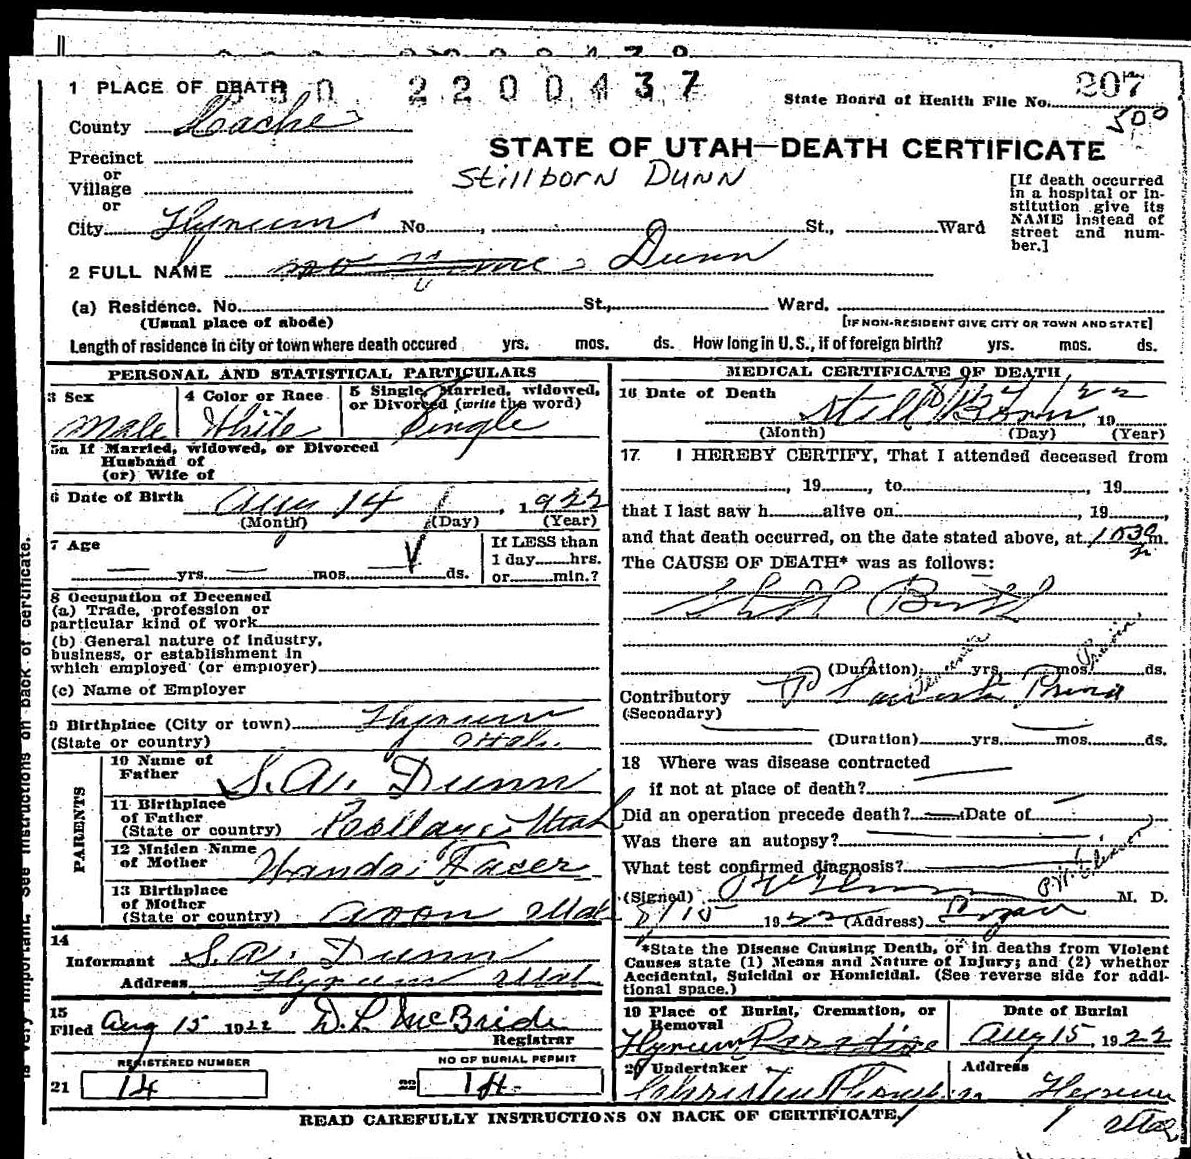 2200437
1 PLACE OF DEATH
State Board of Health File No. 207
500
County Cache
STATE OF UTAH—DEATH CERTIFICATE
Precinct
or
Stillborn Dunn
Village
or
[If death occurred
in a hospital or in-
stitution give its
NAME instead of
street and num-
ber.]
City Hyrum No. St., Ward
2 FULL NAME no name - Dunn
(a) Residence. No. St., Ward.
(Usual place of abode)
[IF NON-RESIDENT GIVE CITY OR TOWN AND STATE]
Length of residence in city or town where death occured yrs. mos. ds. How long in U.S., if of foreign birth? yrs. mos. ds.
PERSONAL AND STATISTICAL PARTICULARS
3 Sex
Male
4 Color or Race
White
5 Single, Married, widowed,
or Divorced (write the word)
Single
5a If Married, widowed, or Divorced
Husband of
(or) Wife of
6 Date of Birth Aug 14, 1922
(Month) (Day) (Year)
7 Age
yrs. mos. ds.
If LESS than
1 day hrs.
or min.?
8 Occupation of Deceased
(a) Trade, profession or
particular kind of work
(b) General nature of industry,
business, or establishment in
which employed (or employer)
(c) Name of Employer
9 Birthplace (City or town) Hyrum
(State or country) Utah
PARENTS
10 Name of
Father S. A. Dunn
11 Birthplace
of Father
(State or country) Utah
12 Maiden Name
of Mother Wanda Facer
13 Birthplace
of Mother
(State or country) Avon Utah
14
Informant S. A. Dunn
Address Hyrum Utah
15
Filed Aug 15 1922 D. L. McBride
Registrar
REGISTERED NUMBER
21 14
NO OF BURIAL PERMIT
22 14
MEDICAL CERTIFICATE OF DEATH
16 Date of Death Still Born 19
(Month) (Day) (Year)
17 I HEREBY CERTIFY, That I attended deceased from
, 19 , to , 19
that I last saw h alive on , 19 ,
and that death occurred, on the date stated above, at 1030 m.
The CAUSE OF DEATH* was as follows:
Still Birth
(Duration) yrs. mos. ds.
Contributory
(Secondary)
(Duration) yrs. mos. ds.
18 Where was disease contracted
if not at place of death?
Did an operation precede death? Date of
Was there an autopsy?
What test confirmed diagnosis?
(Signed) M. D.
8/15 1922 (Address) Logan
*State the Disease Causing Death, or in deaths from Violent
Causes state (1) Means and Nature of Injury; and (2) whether
Accidental, Suicidal or Homicidal. (See reverse side for addi-
tional space.)
19 Place of Burial, Cremation, or
Removal
Hyrum
Date of Burial
Aug 15, 1922
20 Undertaker
Address
Hyrum
Utah
READ CAREFULLY INSTRUCTIONS ON BACK OF CERTIFICATE.
is very important. See instructions on back of certificate.